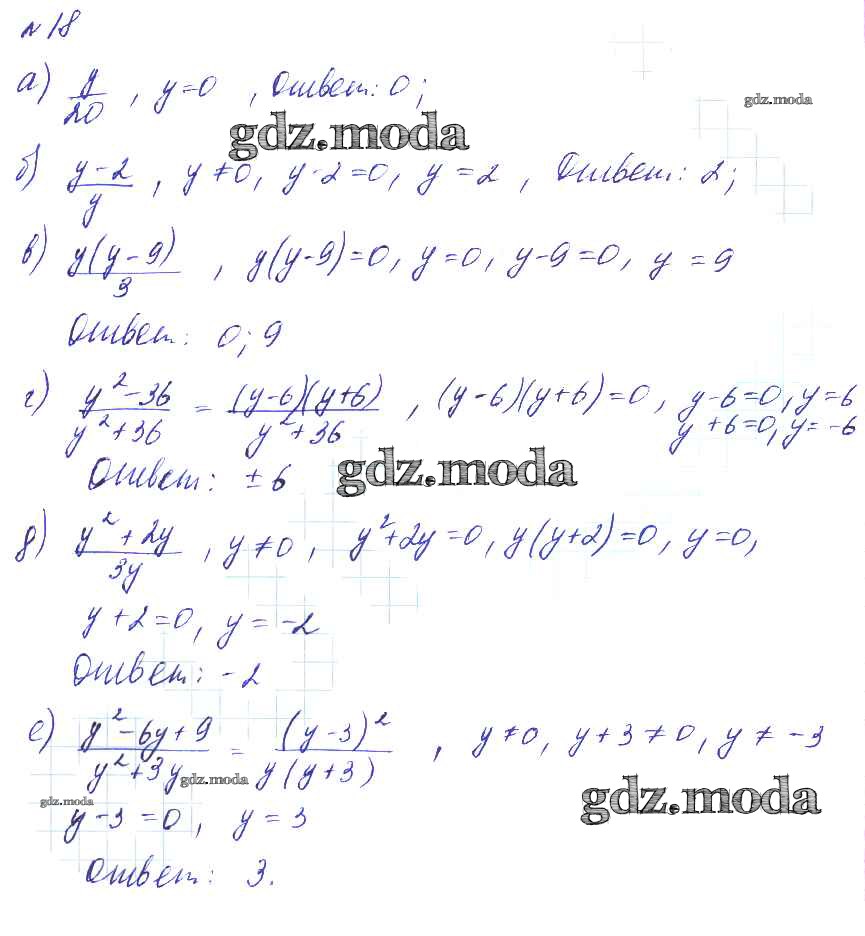 № 18
а) y/20 , y=0 , Ответ: 0;
gdz.moda
gdz.moda
б) (y-2)/y , y≠0, y-2=0, y=2 , Ответ: 2;
в) y(y-9)/3 , y(y-9)=0, y=0, y-9=0, y=9
Ответ: 0; 9
г) (y²-36)/(y²+36) = (y-6)(y+6)/(y²+36) , (y-6)(y+6)=0, y-6=0, y=6
y+6=0, y=-6
Ответ: ±6
gdz.moda
д) (y²+2y)/3y , y≠0, y²+2y=0, y(y+2)=0, y=0,
y+2=0, y=-2
Ответ: -2
е) (y²-6y+9)/(y²+3y) = (y-3)²/y(y+3) , y≠0, y+3≠0, y≠-3
gdz.moda
gdz.moda
gdz.moda
y-3=0, y=3
Ответ: 3.